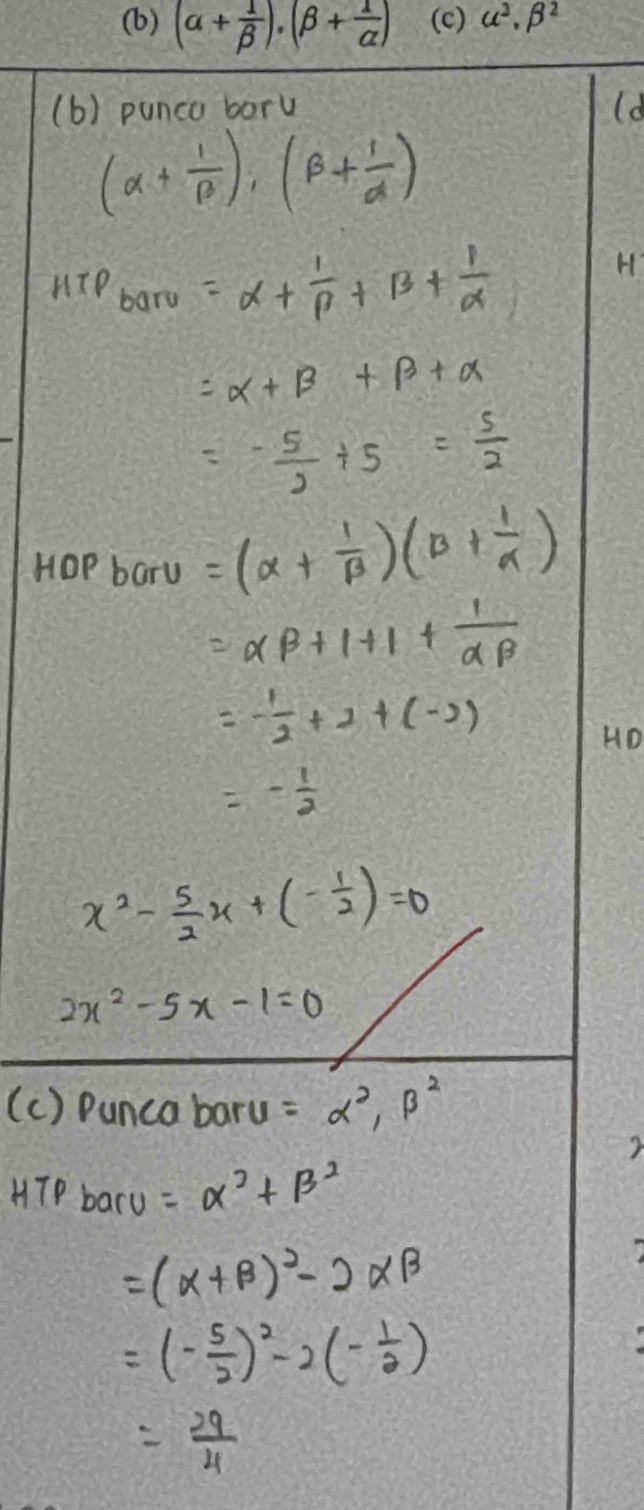 (b) (α + 1/β), (β + 1/α) (c) α², β²
(b) punca baru
(α + 1/β), (β + 1/α)
HTP baru = α + 1/β + β + 1/α
= α + β + β + α
= -5/2 + 5 = 5/2
HDP baru = (α + 1/β)(β + 1/α)
= αβ + 1 + 1 + 1/αβ
= -1/2 + 2 + (-2)
= -1/2
x² - 5/2 x + (-1/2) = 0
2x² - 5x - 1 = 0
(c) Punca baru = α², β²
HTP baru = α² + β²
= (α + β)² - 2αβ
= (-5/2)² - 2(-1/2)
= 29/4
(d
H
HD